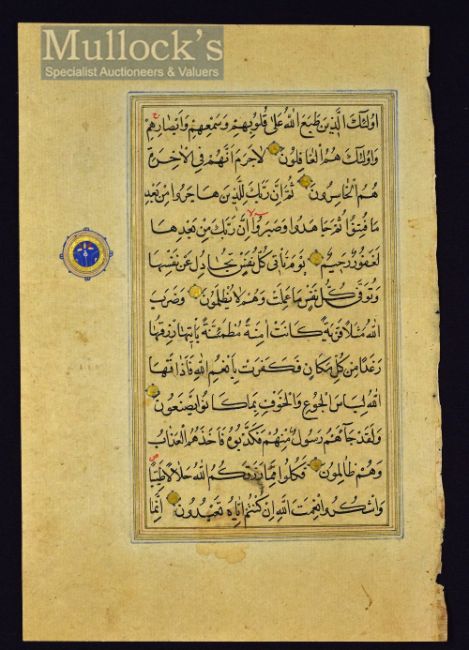 Mullock's
Specialist Auctioneers & Valuers
اولئك الذين طبع الله على قلوبهم وسمعهم وابصارهم
واولئك هم الغافلون لا جرم انهم في الاخرة
هم الخاسرون ثم ان ربك للذين هاجروا من بعد
ما فتنوا ثم جاهدوا وصبروا ان ربك من بعدها
لغفور رحيم يوم تاتي كل نفس تجادل عن نفسها
وتوفى كل نفس ما عملت وهم لا يظلمون وضرب
الله مثلا قرية كانت امنة مطمئنة ياتيها رزقها
رغدا من كل مكان فكفرت بانعم الله فاذاقها
الله لباس الجوع والخوف بما كانوا يصنعون
ولقد جاءهم رسول منهم فكذبوه فاخذهم العذاب
وهم ظالمون فكلوا مما رزقكم الله حلالا طيبا
واشكروا نعمت الله ان كنتم اياه تعبدون انما